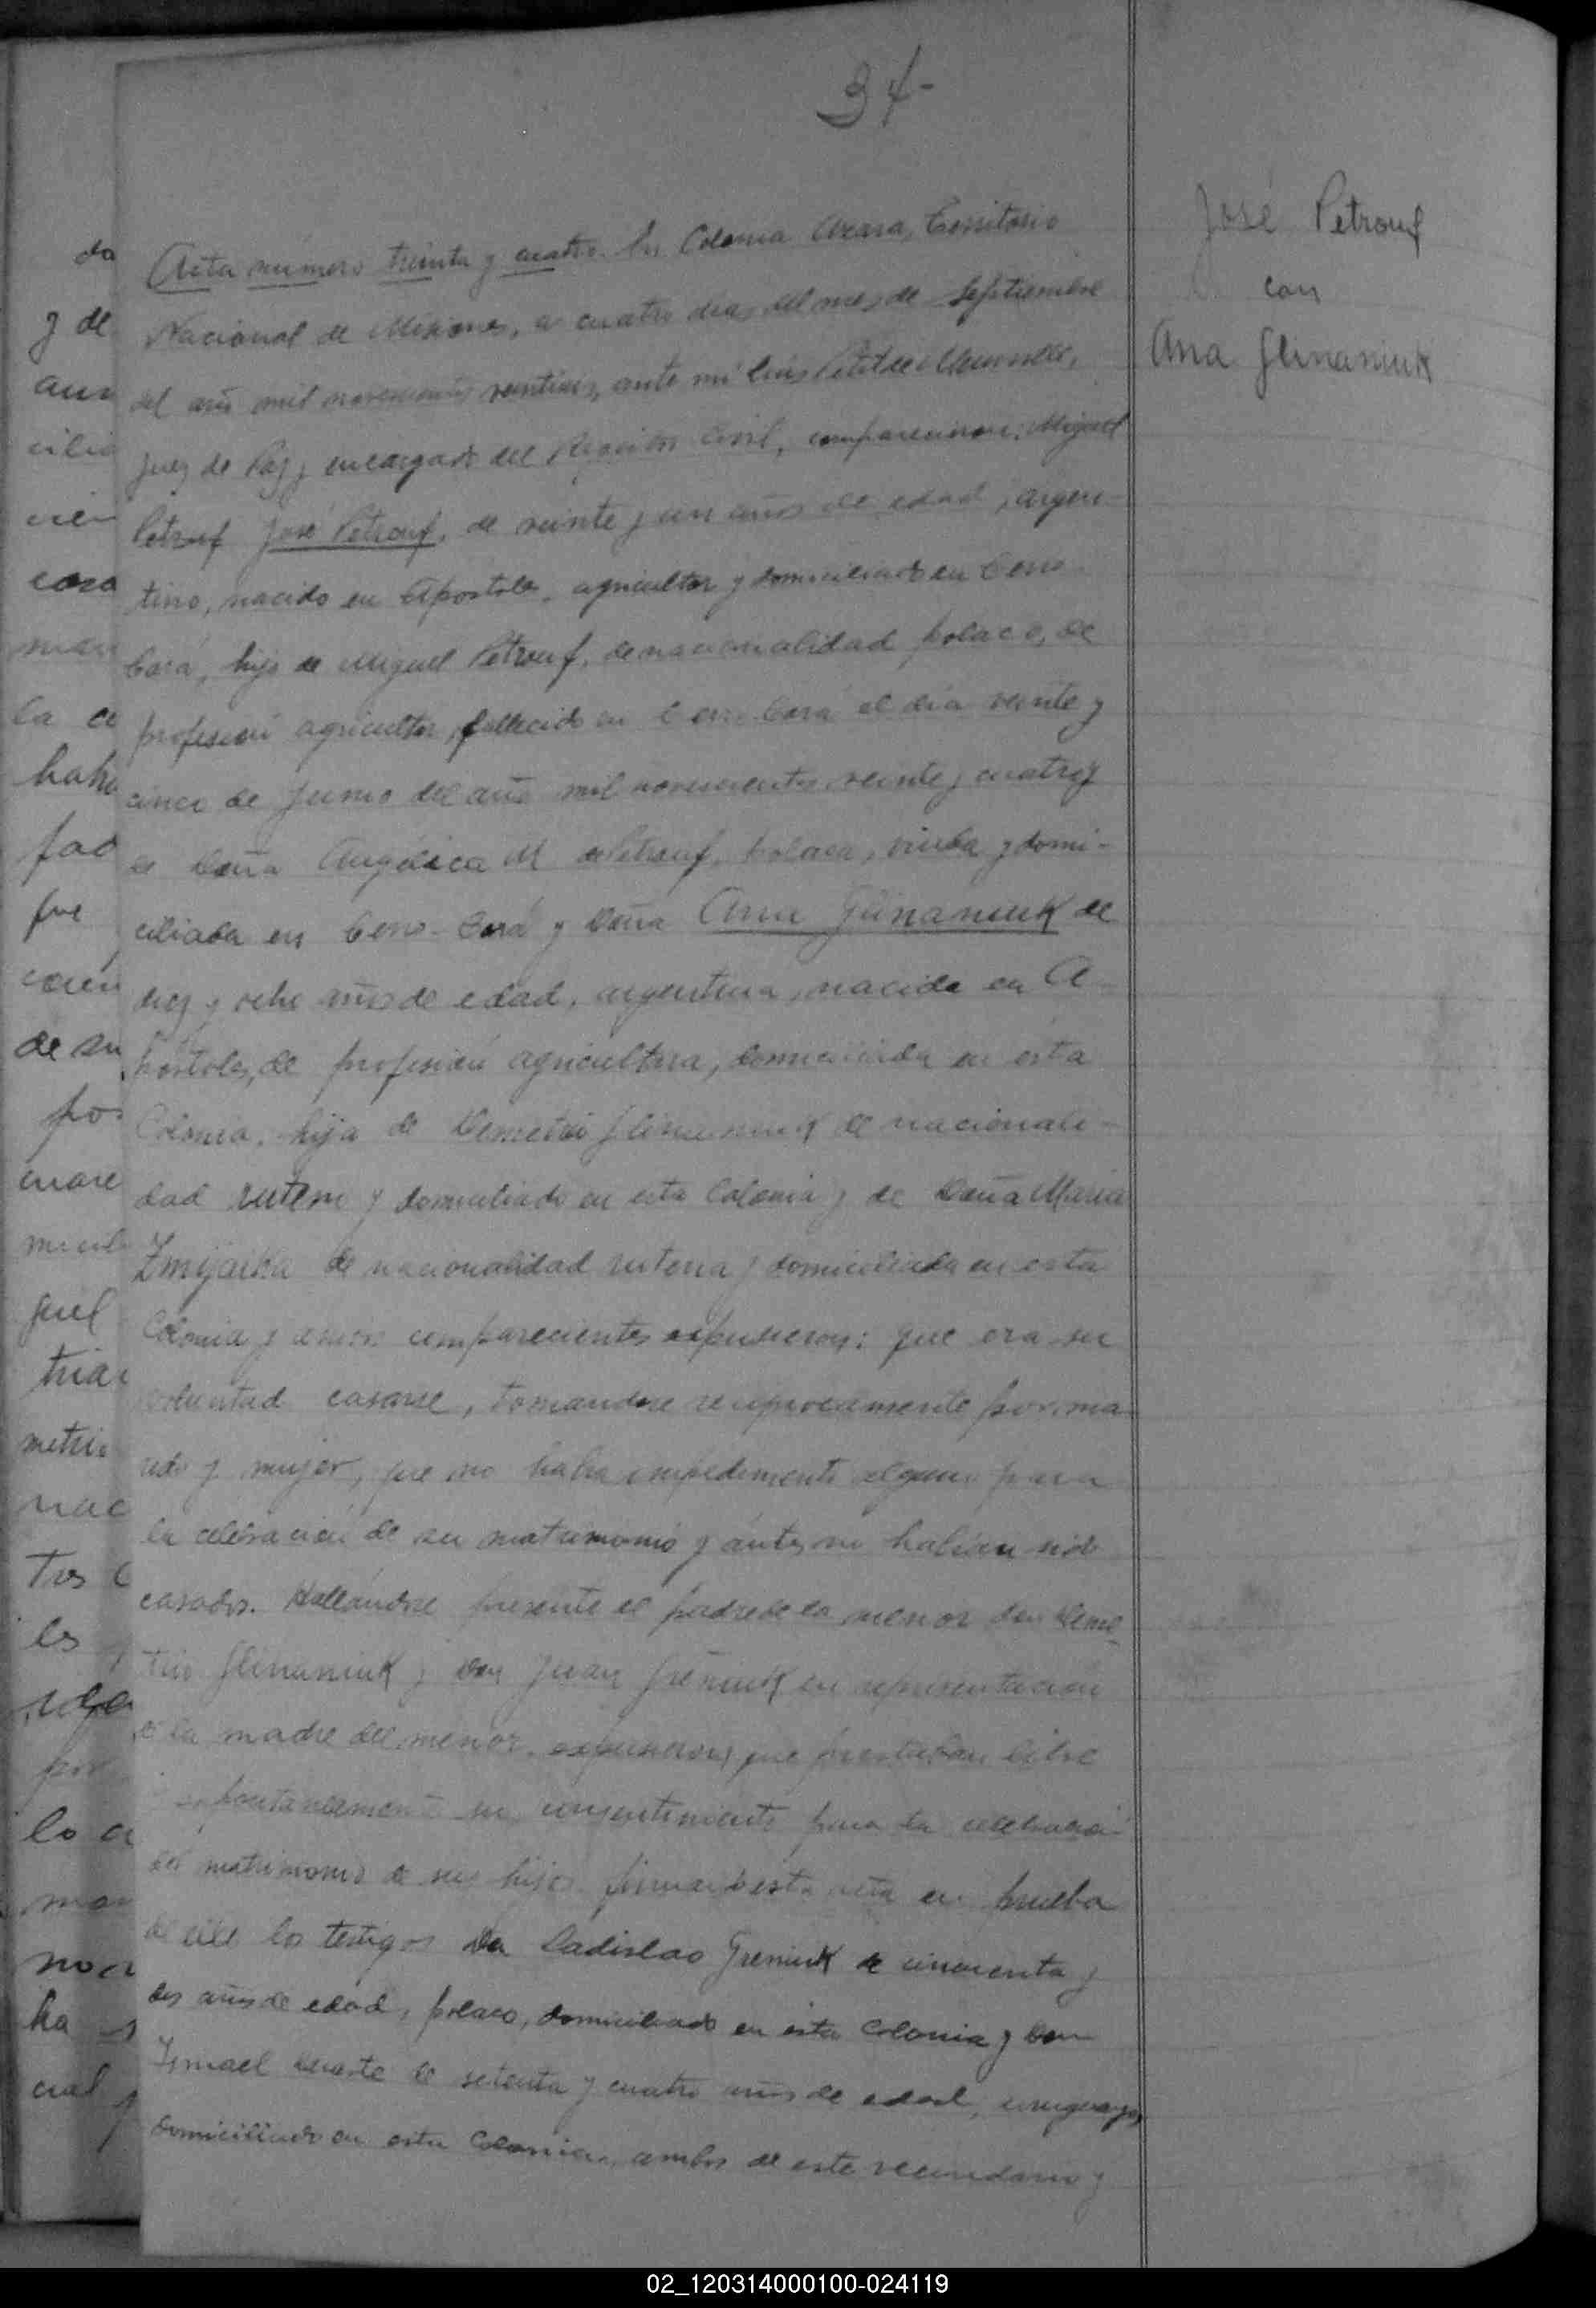 34-
José Petrouf
con
Ana Glinaniuk
Acta número treinta y cuatro. En Colonia Azara, Territorio
Nacional de Misiones, a cuatro dias del mes de Septiembre
del año mil novecientos veintiseis, ante mi Luis Petit de
Juez de Paz y encargado del Registro Civil, comparecieron: Miguel
Petrouf José Petrouf, de veinte y un años de edad, argen-
tino, nacido en Apostoles, agricultor y domiciliado en Cerro-
Corá, hijo de Miguel Petrouf, de nacionalidad polaco, de
profesión agricultor, fallecido en Cerro Corá el día veinte y
cinco de Junio del año mil novecientos veinte y cuatro y
de Doña Angélica M de Petrouf, polaca, viuda y domi-
ciliada en Cerro-Corá y Doña Ana Glinaniuk de
diez y ocho años de edad, argentina, nacida en A-
postoles, de profesión agricultora, domiciliada en esta
Colonia, hija de Demetrio Glinaniuk de nacionali-
dad ruteno y domiciliado en esta Colonia y de Doña Maria
Zmijaska de nacionalidad rutena y domiciliada en esta
Colonia y ambos comparecientes expusieron: que era su
voluntad casarse, tomandose reciprocamente por ma-
rido y mujer, que no habia impedimento alguno para
la celebración de su matrimonio y ántes no habían sido
casados. Hallándose presente el padre de la menor don Deme-
trio Glinaniuk y Don Juan Greniuk en representación
de la madre del menor, expusieron que prestaban libre
espontaneamente su consentimiento para la celebración
del matrimonio de sus hijos firmando esta acta en prueba
de ello los testigos Don Ladislao Greniuk de cincuenta y
dos años de edad, polaco, domiciliado en esta Colonia y Don
Ismael Duarte de setenta y cuatro años de edad, uruguayo,
domiciliado en esta Colonia, ambos de este vecindario y
da
y de
aun
cilia
cien
casa
man
la ce
haho
fad
fue
de su
por
enare
quel
triar
metrio
nac
Tres
les
por
lo a
man
no a
ha
cual
02_120314000100-024119